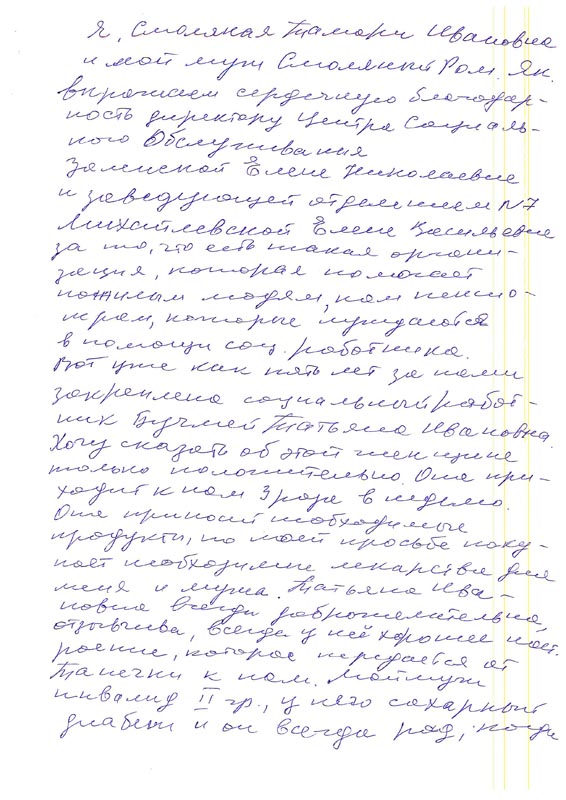 Я, Смоляная Тамара Ивановна
и мой муж Смоляный Ром. Як.
выражаем сердечную благодар-
ность директору Центра Социаль-
ного Обслуживания
Елене Николаевне
и заведующей отделением N7
Михайлевской Елене Васильевне
за то, что есть такая органи-
зация, которая помогает
пожилым людям, нам пенсио-
нерам, которые нуждаются
в помощи соц. работника.
Вот уже как пять лет за нами
закреплена социальный работ-
ник Бучмей Татьяна Ивановна.
Хочу сказать об этой женщине
только положительно. Она при-
ходит к нам 3 раза в неделю.
Она приносит необходимые
продукты, по моей просьбе поку-
пает необходимые лекарства для
меня и мужа. Татьяна Ива-
новна всегда доброжелательна,
отзывчива, всегда у неё хорошее наст.
роение, которое передается от
Танечки к нам. Мой муж
инвалид II гр., у него сахарный
диабет и он всегда рад, когда